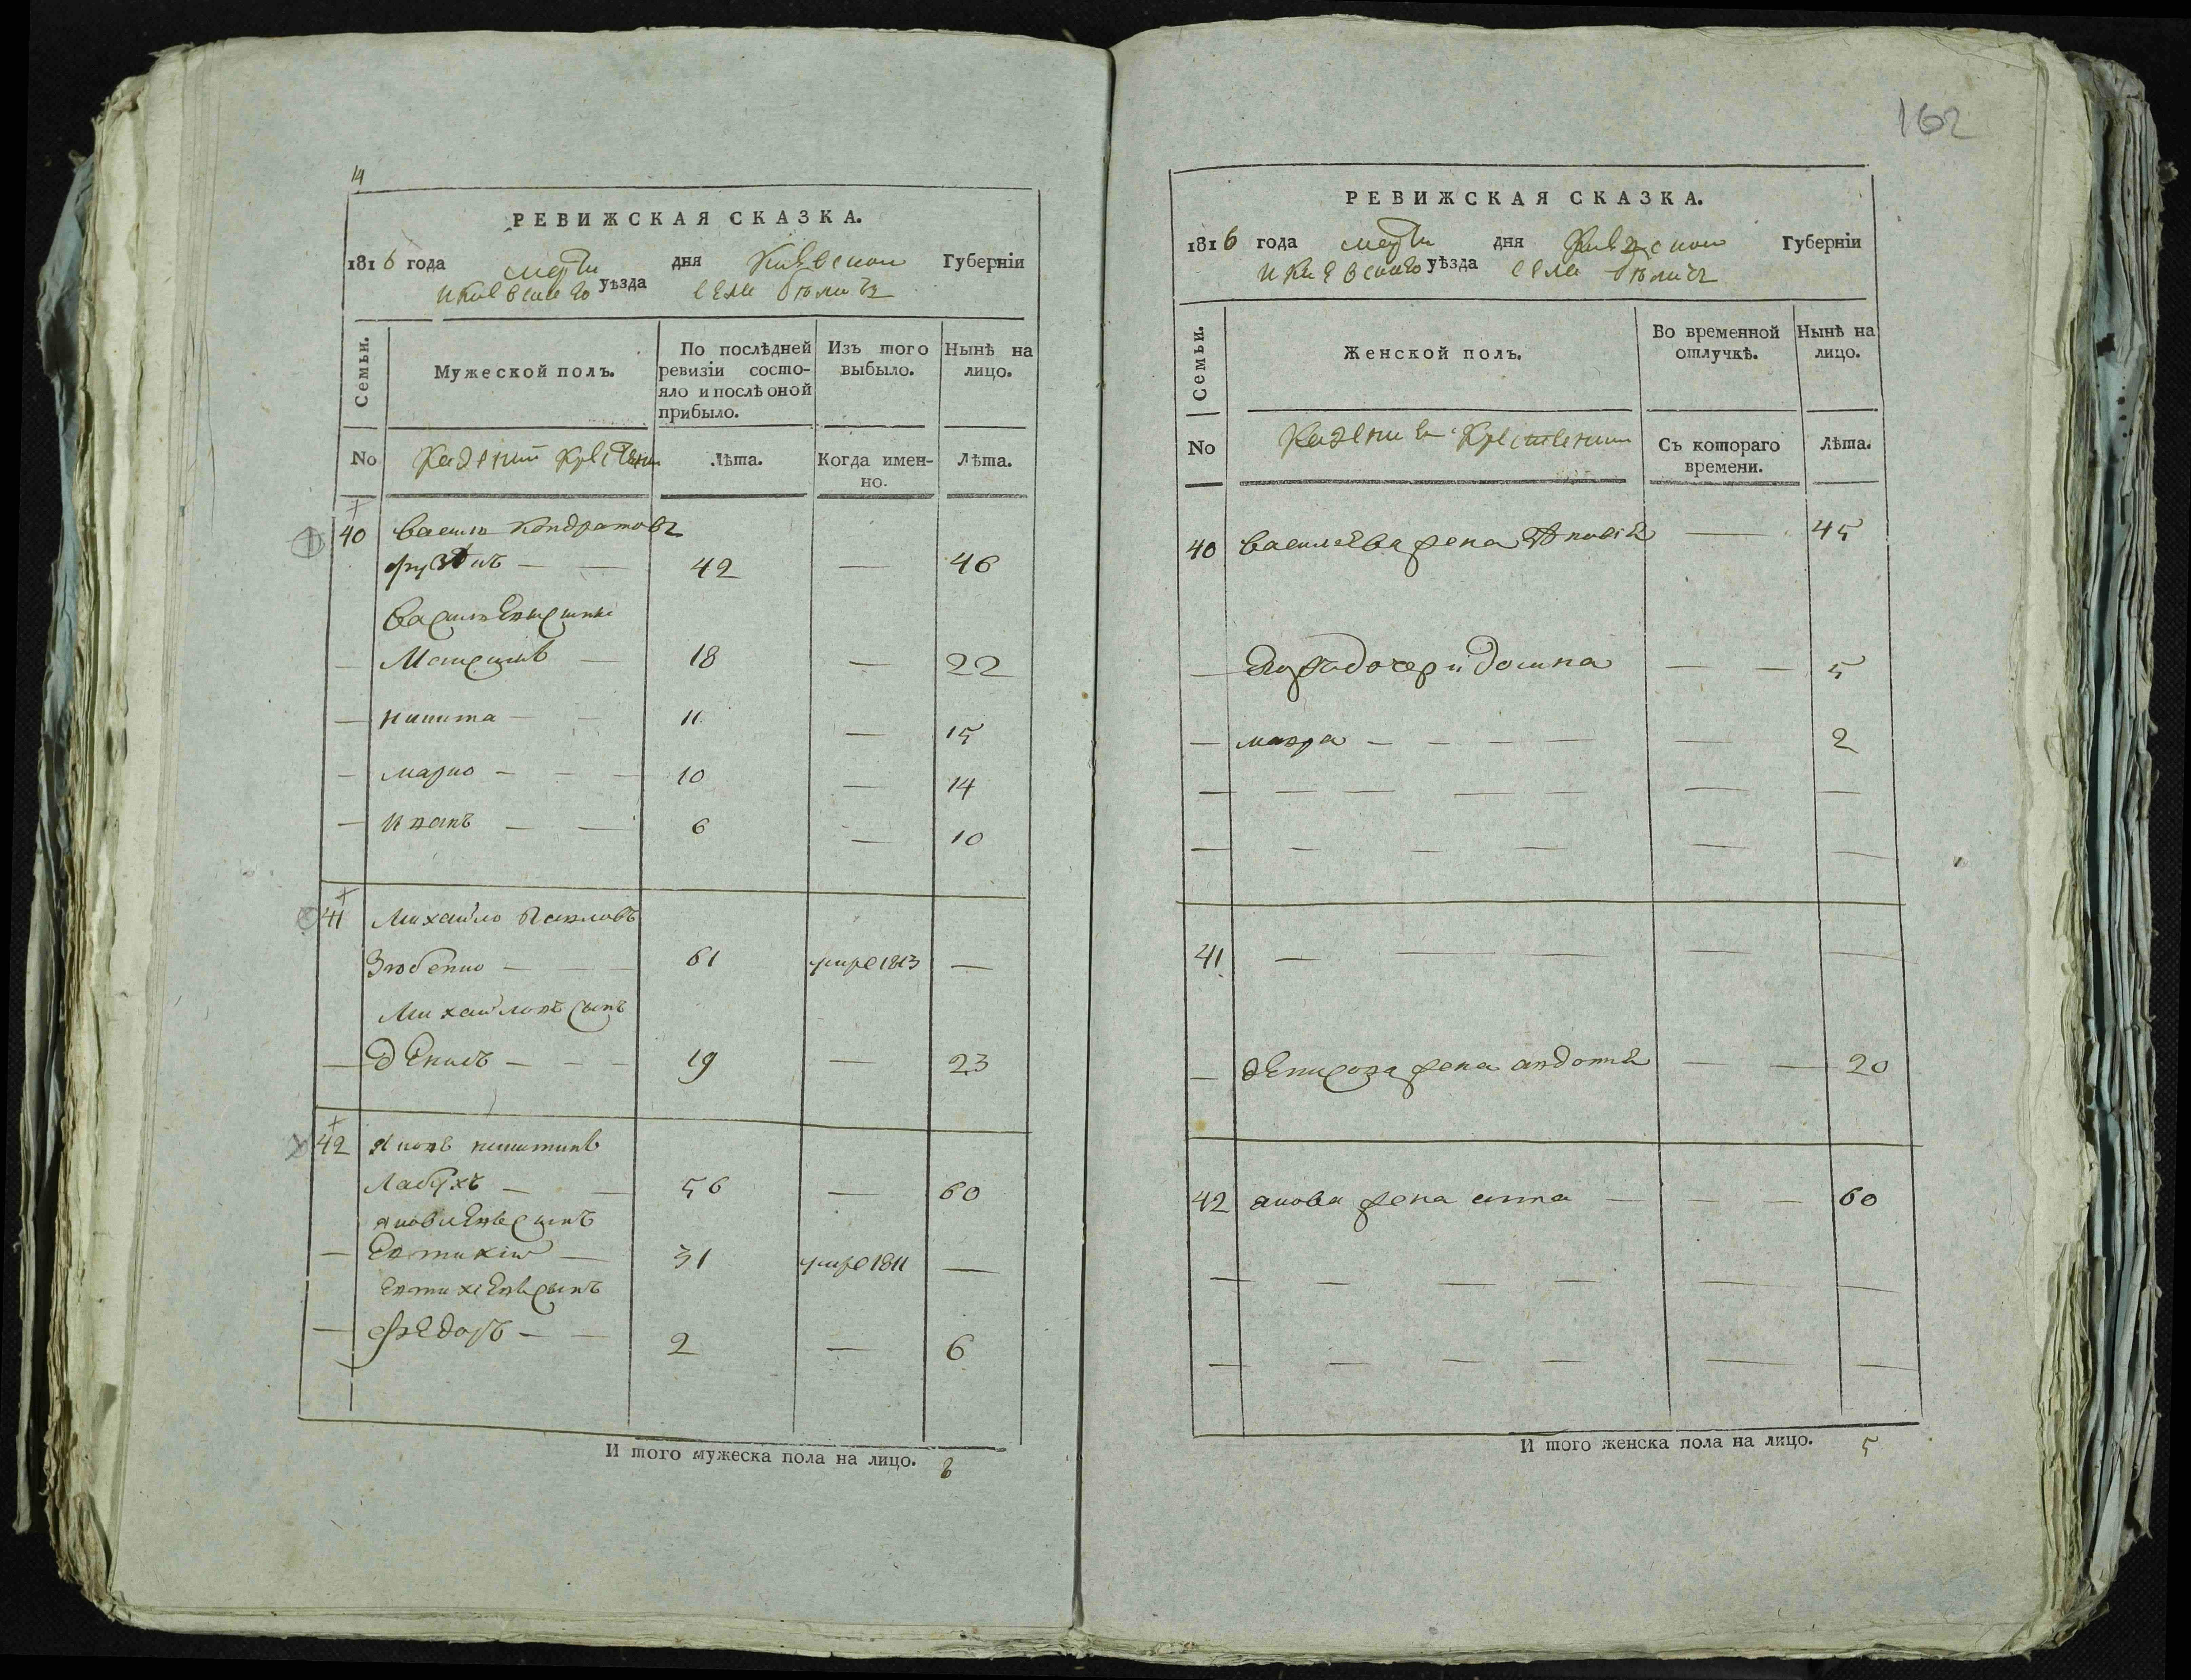 14
РЕВИЖСКАЯ СКАЗКА.
1816 года марта дня Киевской Губернїи
и Киевскаго уѣзда села
Семьи.
Мужеской полъ.
По послѣдней ревизїи состо-
яло и послѣ оной прибыло.
Изъ того выбыло.
Нынѣ на лицо.
No Казенни Крестяни Лѣта. Когда имен-
но. Лѣта.
40 Василь Кондратовъ
42 — 46
Василевы сыны
— Максимъ — 18 — 22
— Никита — — 11 — 15
— Марко — — — 10 — 14
— Иванъ — — 6 — 10
41 Михайло Павловъ
Зюбенко — — — 61 умре 1813 —
Михайловъ сынъ
— Денисъ — — — 19 — 23
42 Яковъ Никитинъ
Лабухъ — — 56 — 60
Яковлевъ сынъ
— Евтихїй — 31 умре 1811 —
Евтихїевъ сынъ
— Федоръ — — 2 — 6
И того мужеска пола на лицо. 8
162
РЕВИЖСКАЯ СКАЗКА.
1816 года марта дня Киевской Губернїи
и Киевскаго уѣзда села
Семьи.
Женской полъ.
Во временной отлучкѣ.
Нынѣ на лицо.
No Казение Крестяники Съ котораго
времени. Лѣта.
40 Василева жена — 45
— Его дочери Домна — — 5
— Мавра — — — — — 2
— — — — — — —
— — — — — —
41 — — — — —
— Денисова жена Авдотия — — 20
42 Якова жена Анна — — — 60
— — — — — —
— — — — — —
И того женска пола на лицо. 5